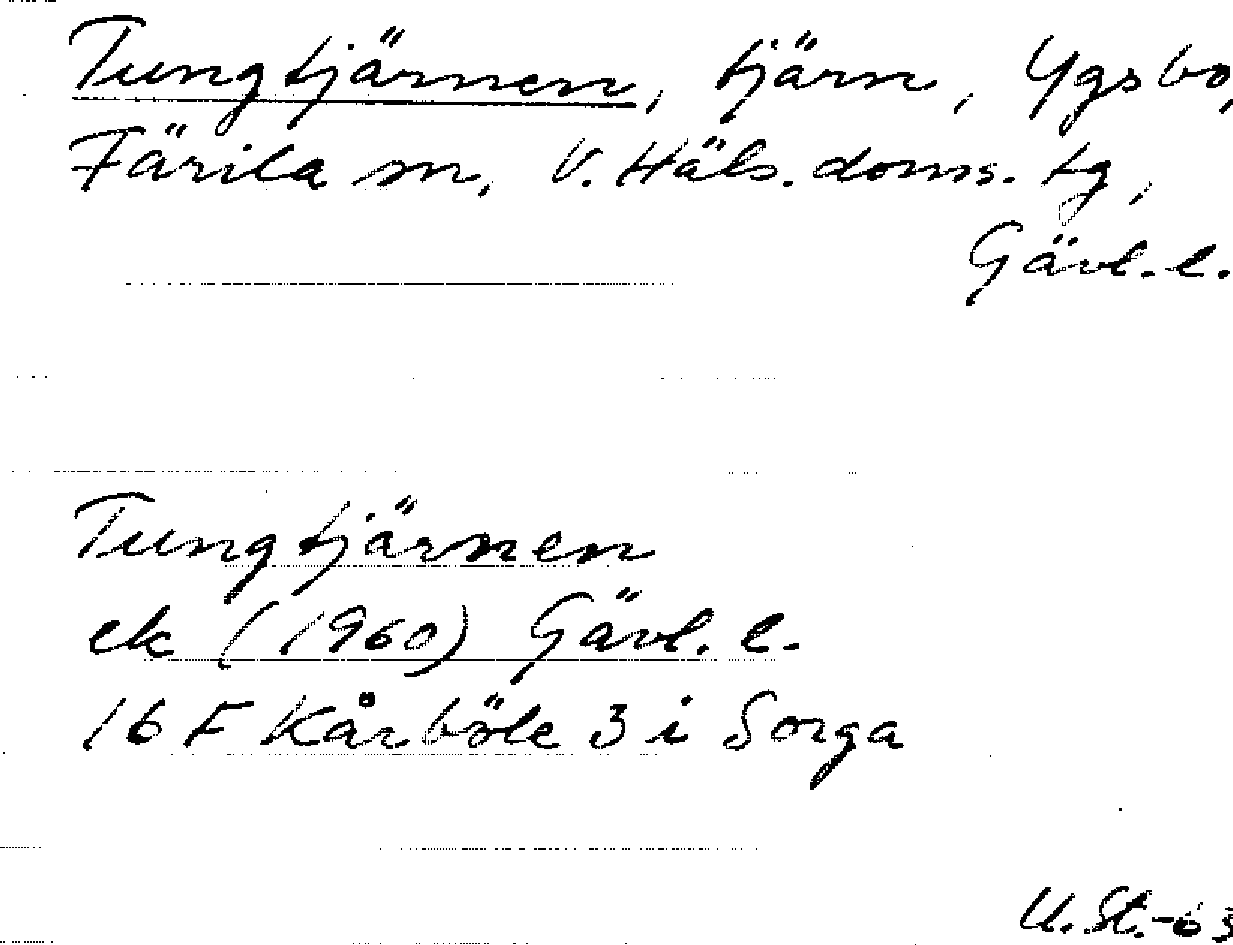 Tungtjärnen, tjärn, Ygsbo,
Färila sn, V. Häls. doms. tg,
Gävl. l.
Tungtjärnen
ek (1960) Gävl. l.
16 F Kårböle 3 i Sorga
U. St.-63